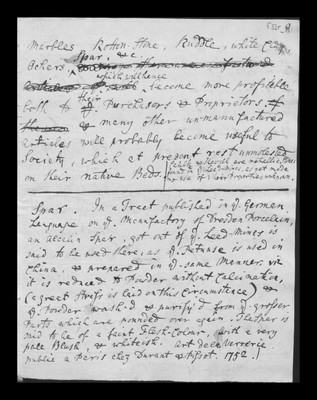 Marbles, Rotton-Stone, Ruddle, white Clays
Spar, &c.
Ochers,
which will hence
become more profitable
both to yͤ. their Purchasors & Proprietors,
& many other un-manufactured
articles will probably become useful to
Society, which at present rest unmolested
on their native Beds.
Spar. In a Treat published in yͤ. German
Language on yͤ. Manufactory of Dresden Porcelain,
an alcaline Spar, got out of yͤ. Lead Mines is
said to be used there, as yͤ. Petunse is used in
China, & prepared in yͤ. same Manner, viz
it is reduced to Powder without Calcination,
(a great stress is laid on this Circumstance) &
yͤ. Powder wash'd & purify'd from yͤ. grosser
Parts which are pounded over again. The Spar is
said to be of a faint Flesh-Colour, with a very
pale Blush, & whiteish. Art de la Verrerie
publié a Paris chez Durant & Pissot. 1752.)